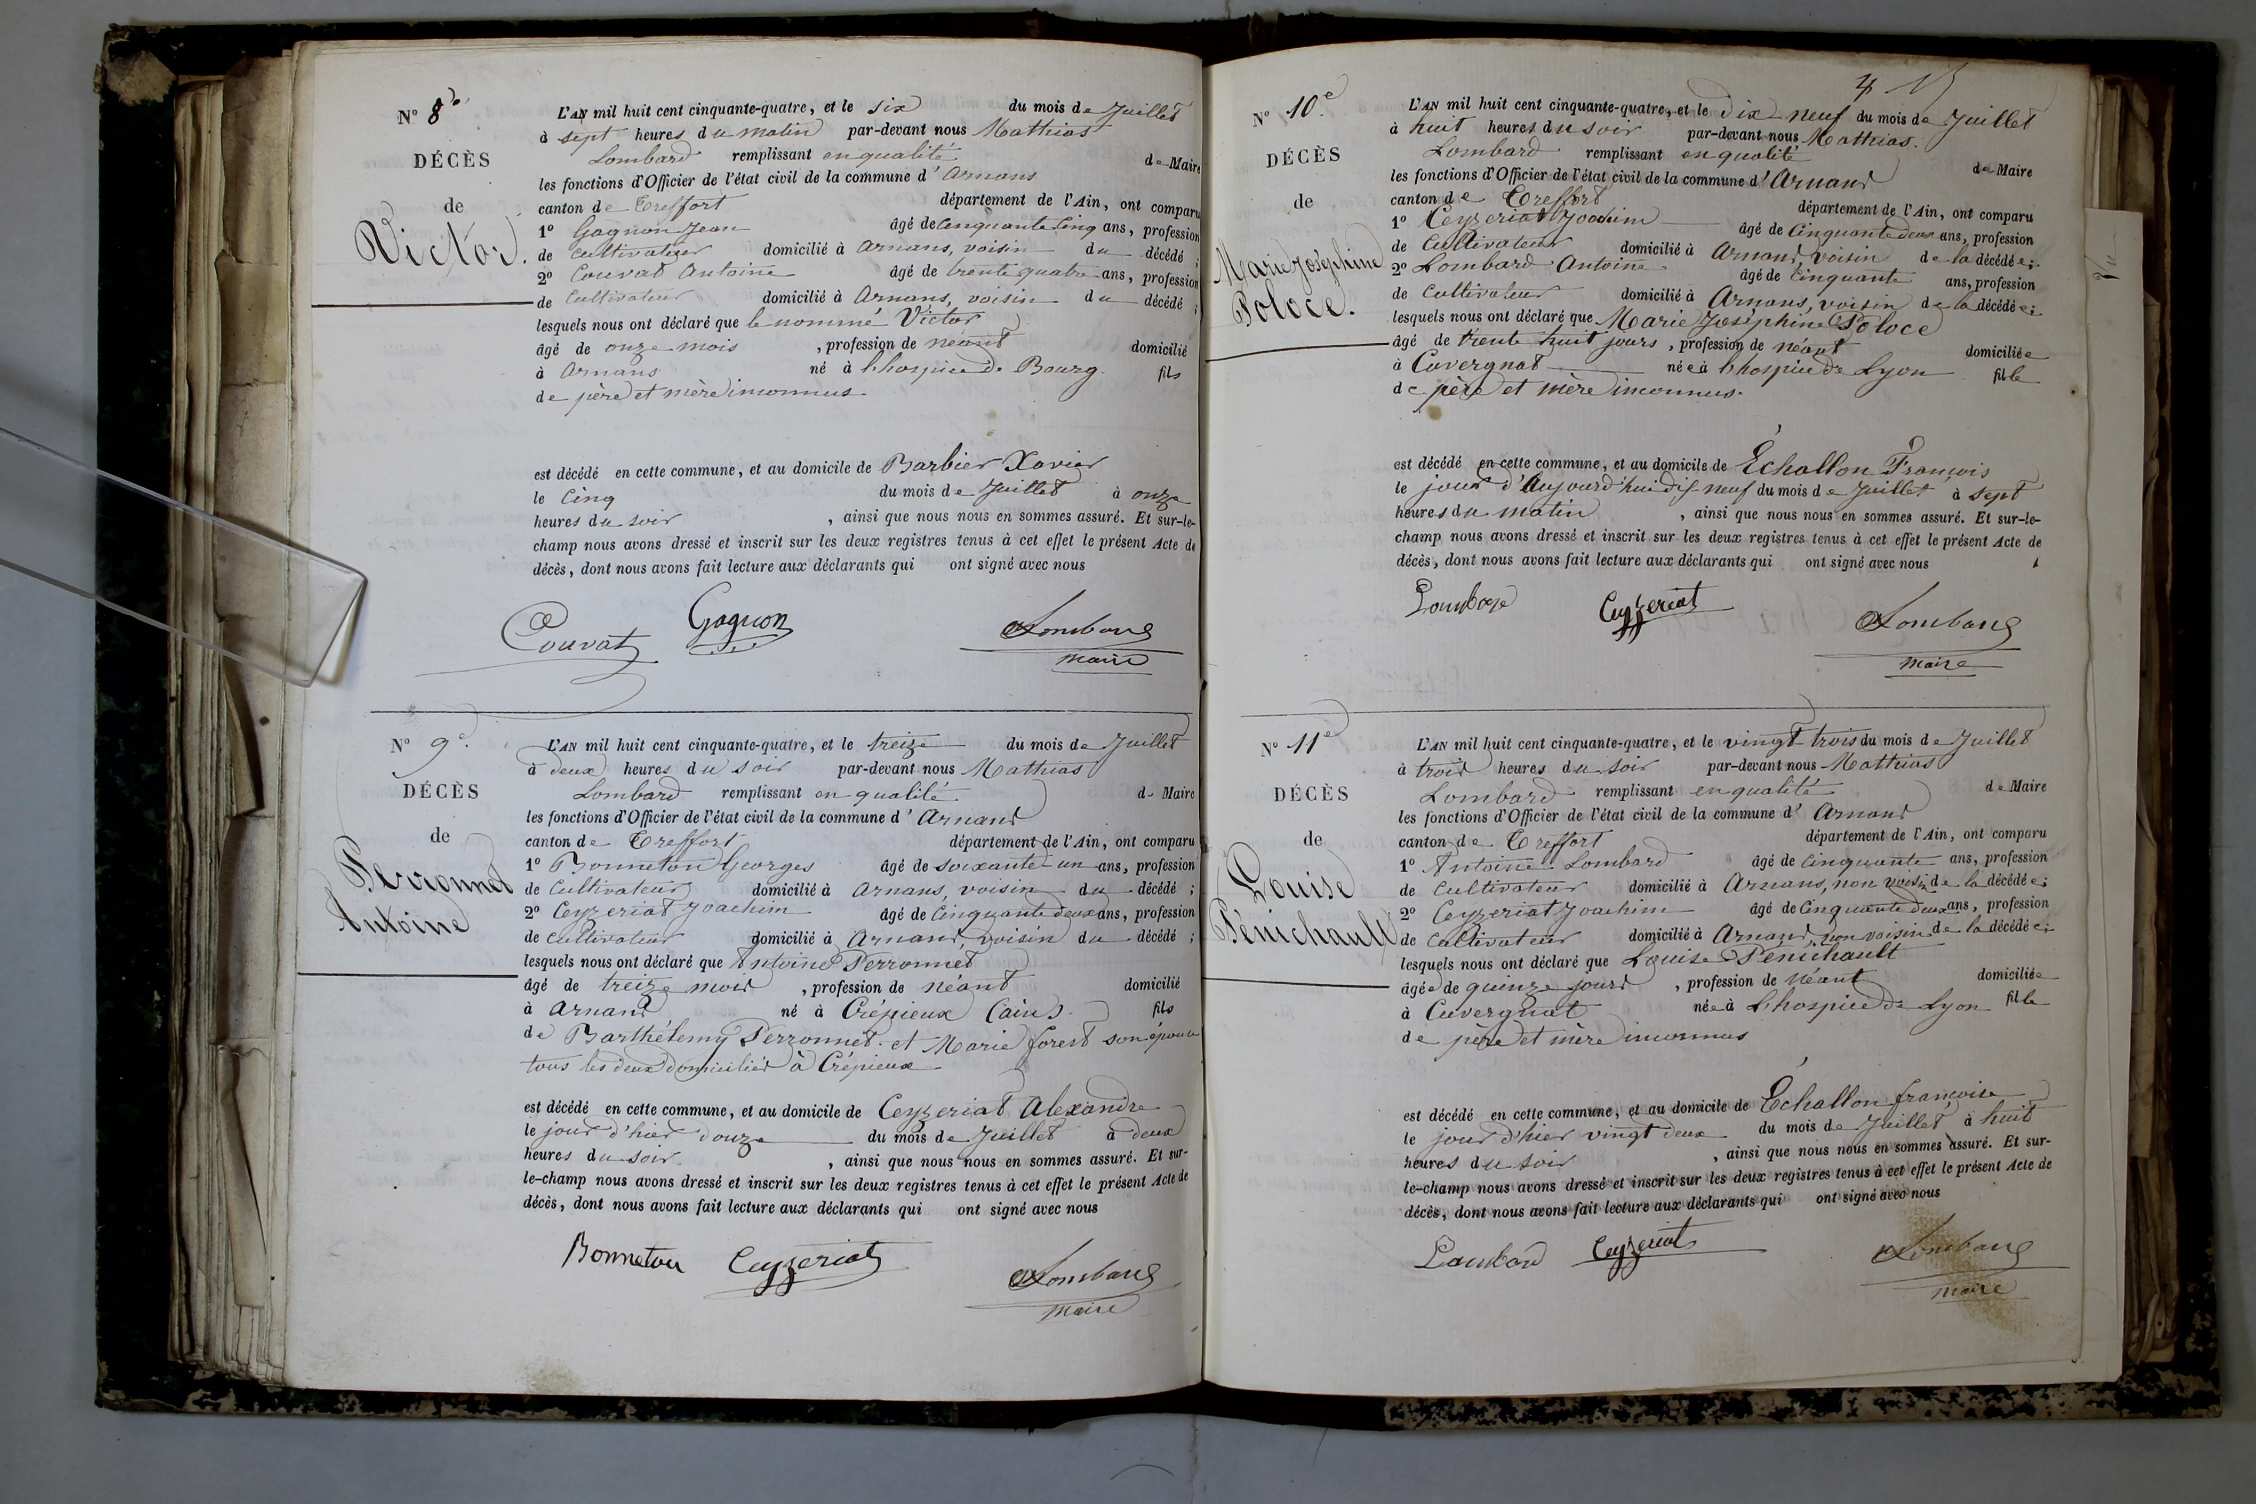 N° 8e
DÉCÈS
de
Victor.
L'AN mil huit cent cinquante-quatre, et le six du mois de Juillet
à sept heures du matin par-devant nous Mathias
Lombard remplissant en qualité de Maire
les fonctions d'Officier de l'état civil de la commune d'Arnans
canton de Treffort département de l'Ain, ont comparu
1° Gagnon Jean âgé de cinquante cinq ans, profession
de cultivateur domicilié à Arnans, voisin du décédé ;
2° Couvat Antoine âgé de trente quatre ans, profession
de cultivateur domicilié à Arnans, voisin du décédé ;
lesquels nous ont déclaré que le nommé Victor
âgé de onze mois , profession de néant domicilié
à Arnans né à l'hospice de Bourg fils
de père et mère inconnus.
est décédé en cette commune, et au domicile de Barbier Xavier
le cinq du mois de Juillet à onze
heures du soir , ainsi que nous nous en sommes assuré. Et sur-le-
champ nous avons dressé et inscrit sur les deux registres tenus à cet effet le présent Acte de
décès, dont nous avons fait lecture aux déclarants qui ont signé avec nous
Couvat Gagnon Lombard
maire
N° 9e.
DÉCÈS
de
Perronnet
Antoine
L'AN mil huit cent cinquante-quatre, et le treize du mois de Juillet
à deux heures du soir par-devant nous Mathias
Lombard remplissant en qualité de Maire
les fonctions d'Officier de l'état civil de la commune d'Arnans
canton de Treffort département de l'Ain, ont comparu
1° Bonneton Georges âgé de soixante-un ans, profession
de cultivateur domicilié à Arnans, voisin du décédé ;
2° Ceyzeriat Joachim âgé de cinquante deux ans, profession
de cultivateur domicilié à Arnans, voisin du décédé ;
lesquels nous ont déclaré que Antoine Perronnet
âgé de treize mois , profession de néant domicilié
à Arnans né à Crépieux (ain). fils
de Barthélemy Perronnet et Marie forest son épouse
tous les deux domiciliés à Crépieux
est décédé en cette commune, et au domicile de Ceyzeriat Alexandre
le jour d'hier douze du mois de Juillet à deux
heures du soir , ainsi que nous nous en sommes assuré. Et sur-
le-champ nous avons dressé et inscrit sur les deux registres tenus à cet effet le présent Acte de
décès, dont nous avons fait lecture aux déclarants qui ont signé avec nous
Bonneton Ceyzeriat Lombard
maire
N° 10e.
DÉCÈS
de
Marie Joséphine
Poloce.
L'AN mil huit cent cinquante-quatre, et le Dix-neuf du mois de Juillet
à huit heures du soir par-devant nous Mathias.
Lombard remplissant en qualité de Maire
les fonctions d'Officier de l'état civil de la commune d'Arnans
canton de Treffort département de l'Ain, ont comparu
1° Ceyzeriat Joachim âgé de cinquante deux ans, profession
de cultivateur domicilié à Arnans, voisin de la décédée ;
2° Lombard Antoine âgé de cinquante ans, profession
de cultivateur domicilié à Arnans, voisin de la décédée ;
lesquels nous ont déclaré que Marie Joséphine Poloce
âgé de trente huit jours , profession de néant domiciliée
à Cuvergnat née à l'hospice de Lyon fille
de père et mère inconnus.
est décédé en cette commune, et au domicile de Échallon François
le jour d'Aujourd'hui dix neuf du mois de Juillet à sept
heures du matin , ainsi que nous nous en sommes assuré. Et sur-le-
champ nous avons dressé et inscrit sur les deux registres tenus à cet effet le présent Acte de
décès, dont nous avons fait lecture aux déclarants qui ont signé avec nous
Lombard Ceyzeriat Lombard
maire
N° 11e
DÉCÈS
de
Louise
Pénichault
L'AN mil huit cent cinquante-quatre, et le vingt trois du mois de Juillet
à trois heures du soir par-devant nous Mathias
Lombard remplissant en qualité de Maire
les fonctions d'Officier de l'état civil de la commune d'Arnans
canton de Treffort département de l'Ain, ont comparu
1° Antoine Lombard âgé de cinquante ans, profession
de cultivateur domicilié à Arnans, non voisin de la décédée ;
2° Ceyzeriat Joachim âgé de cinquante deux ans, profession
de cultivateur domicilié à Arnans, non voisin de la décédée ;
lesquels nous ont déclaré que Louise Pénichault
âgée de quinze jours , profession de néant domiciliée
à Cuvergnat née à l'hospice de Lyon fille
de père et mère inconnus
est décédé en cette commune, et au domicile de Échallon françoise
le jour d'hier vingt deux du mois de Juillet à huit
heures du soir , ainsi que nous nous en sommes assuré. Et sur-
le-champ nous avons dressé et inscrit sur les deux registres tenus à cet effet le présent Acte de
décès, dont nous avons fait lecture aux déclarants qui ont signé avec nous
Lombard Ceyzeriat Lombard
maire